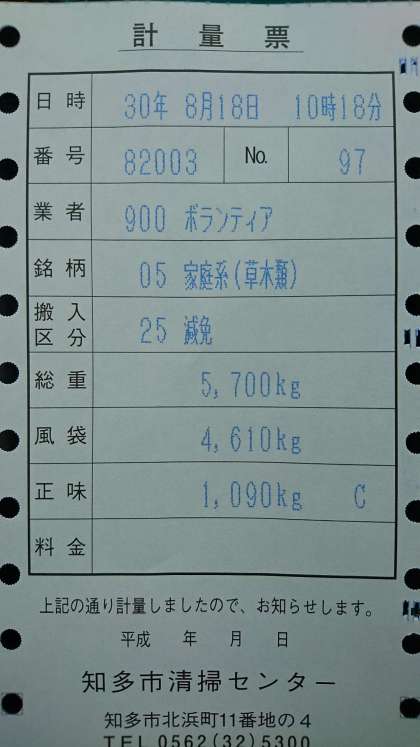 計量票
日時 30年 8月18日 10時18分
番号 82003 No. 97
業者 900 ボランティア
銘柄 05 家庭系(草木類)
搬入区分 25 減免
総重 5,700kg
風袋 4,610kg
正味 1,090kg C
料金
上記の通り計量しましたので、お知らせします。
平成 年 月 日
知多市清掃センター
知多市北浜町11番地の4
TEL 0562(32)5300